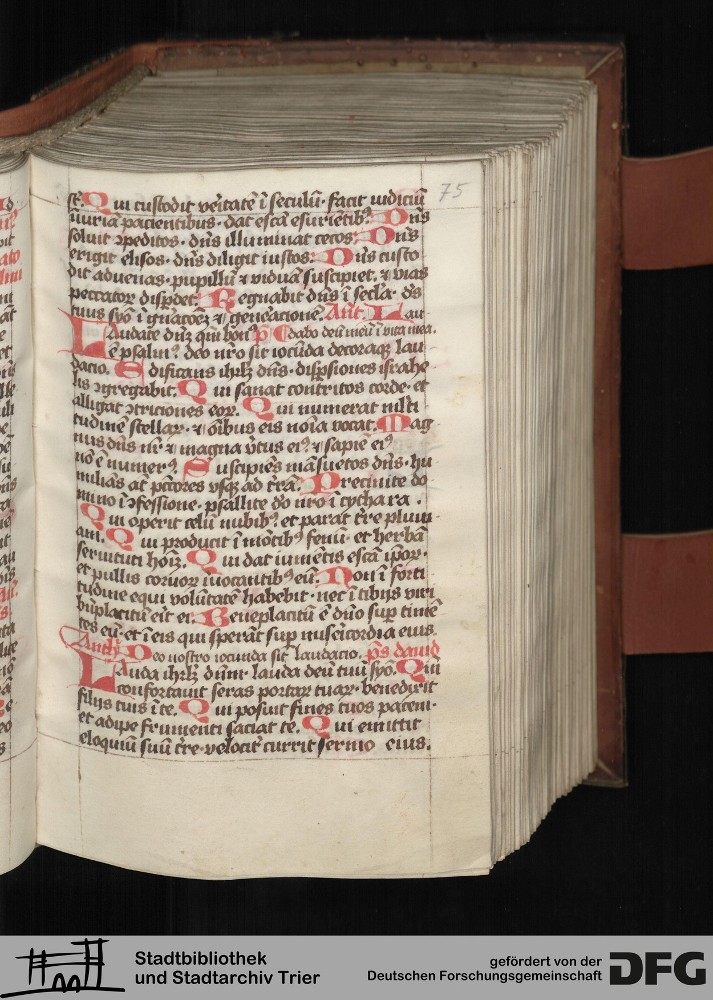 75
st. Qui custodit veritatē ī seculū· facit iudiciū
iniuriā pacientibus· dat escā esurietibꝫ. Dn̄s
soluit ꝯpeditos· dn̄s illuminat cecos. Dn̄s
erigit elisos· dn̄s diligit iustos. Dn̄s custo
dit aduenas· pupillū ⁊ viduā suscipiet· ⁊ vias
peccatoꝝ disꝑdet. Regnabit dn̄s ī secl̄a· ds̄
tuus syō ī gn̄acōeꝫ ⁊ generacione. Ant̄. Lau
Laudate dn̄ꝫ qm̄ bonꝰ p̄s Psdabo deū meū ī vita mea.
ē psalmꝰ· deo nr̄o sit iocūda decoraqꝫ lau
dacio. Edificans ihrl̄ꝫ dn̄s· disꝑsiones israhe
lis ꝯgregabit. Qui sanat contritos corde· et
alligat ꝯtriciones eoꝝ. Qui numerat ml̄ti
tudinē stellaꝝ· ⁊ oībus eis noīa vocat. Mag
nus dn̄s nr̄ ⁊ magna v̄tus eiꝰ· ⁊ sapiē eiꝰ
nō ē numerꝰ. Suscipiēs māsuetos dn̄s· hu
milians at̄ pctōres vsqꝫ ad trā. Precinite do
mino ī ꝯfessione· psallite dō nr̄o ī cythara.
Qui operit celū nubibꝰ· et parat t̄re pluui
am. Qui producit ī mōtibꝰ fenū· et herbā
seruituti hōīꝫ. Qui dat iumētis escā ip̄oꝝ·
et pullis coruoꝝ īuocantibꝰ eū. Non ī forti
tudine equi volūtatē habebit· nec ī tibijs viri
bn̄placitū eit̄ ei. Beneplacitū ē dn̄o suꝑ timē
tes eū· et ī eis qui sperāt suꝑ misericordia eius.
Anth̄. Deo nostro iocunda sit laudacio. p̄s dauid
Lauda ihrl̄ꝫ dūm· lauda deū tuū syō. Qm̄
confortauit seras portaꝝ tuaꝝ· benedixit
filijs tuis ī te. Qui posuit fines tuos pacem·
et adipe frumenti saciat te. Qui emittit
eloquiū suū t̄re· velocit̄ currit sermo eius.
Stadtbibliothek
und Stadtarchiv Trier
gefördert von der
Deutschen Forschungsgemeinschaft
DFG